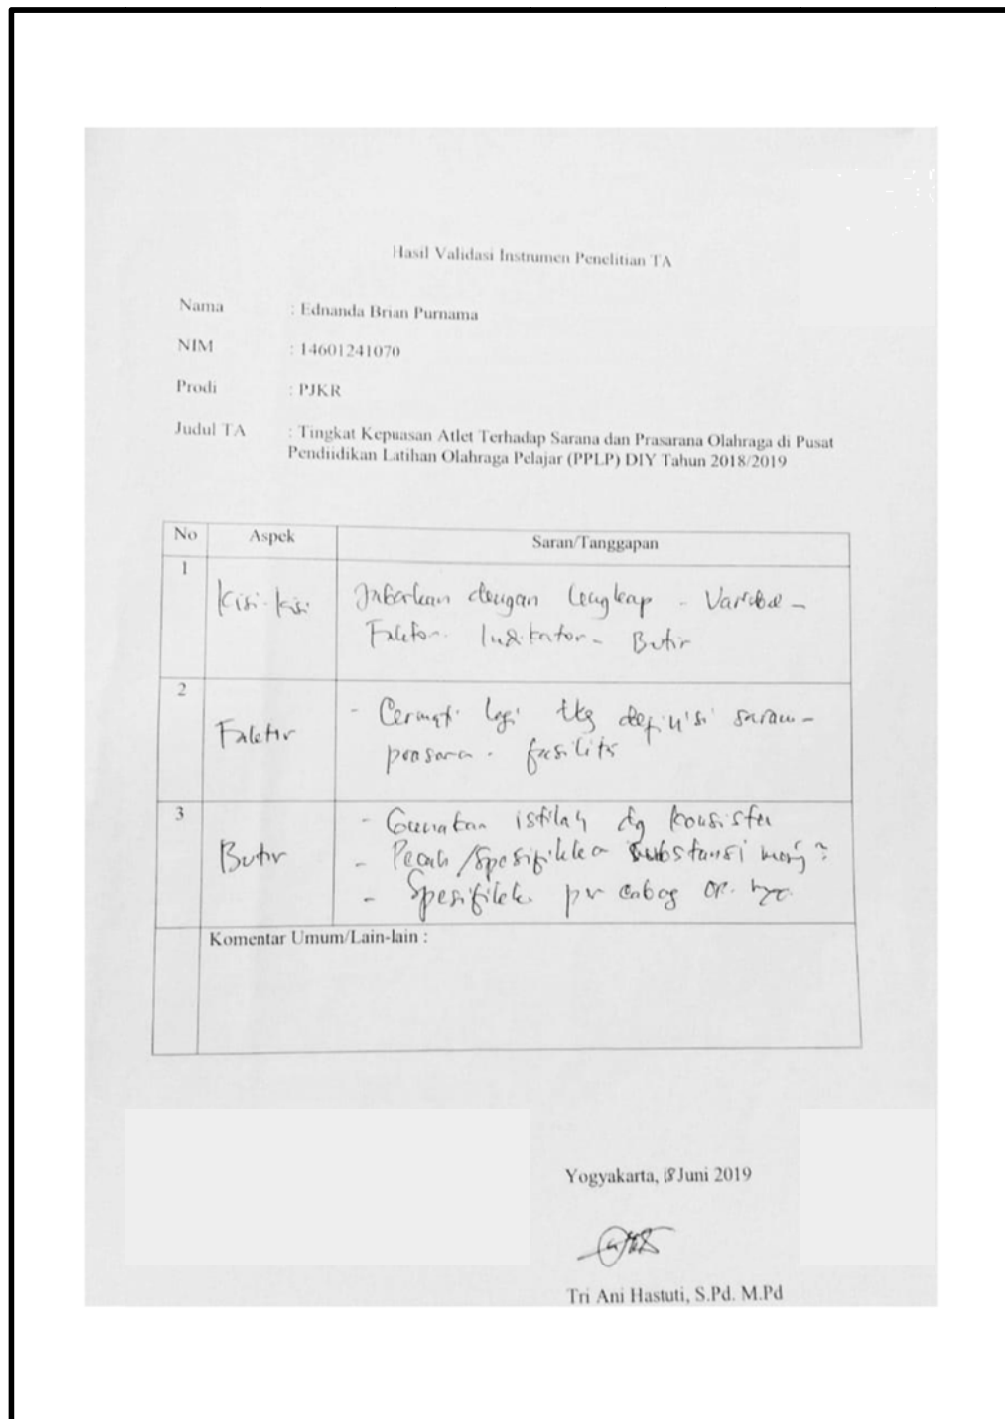 Hasil Validasi Instrumen Penelitian TA
Nama : Ednanda Brian Purnama
NIM : 14601241070
Prodi : PJKR
Judul TA : Tingkat Kepuasan Atlet Terhadap Sarana dan Prasarana Olahraga di Pusat
Pendiidikan Latihan Olahraga Pelajar (PPLP) DIY Tahun 2018/2019
No Aspek Saran/Tanggapan
1
Kisi-kisi
Jabarkan dengan lengkap - Variabel -
Faktor - Indikator - Butir
2
Faktor
- Cermati lagi ttg definisi sarana -
prasarana - fasilits
3
Butir
- Gunakan istilah dg konsisten
- Pecah/Spesifikkan substansi
- Spesifikk cabag or.
Komentar Umum/Lain-lain :
Yogyakarta, Juni 2019
Tri Ani Hastuti, S.Pd. M.Pd